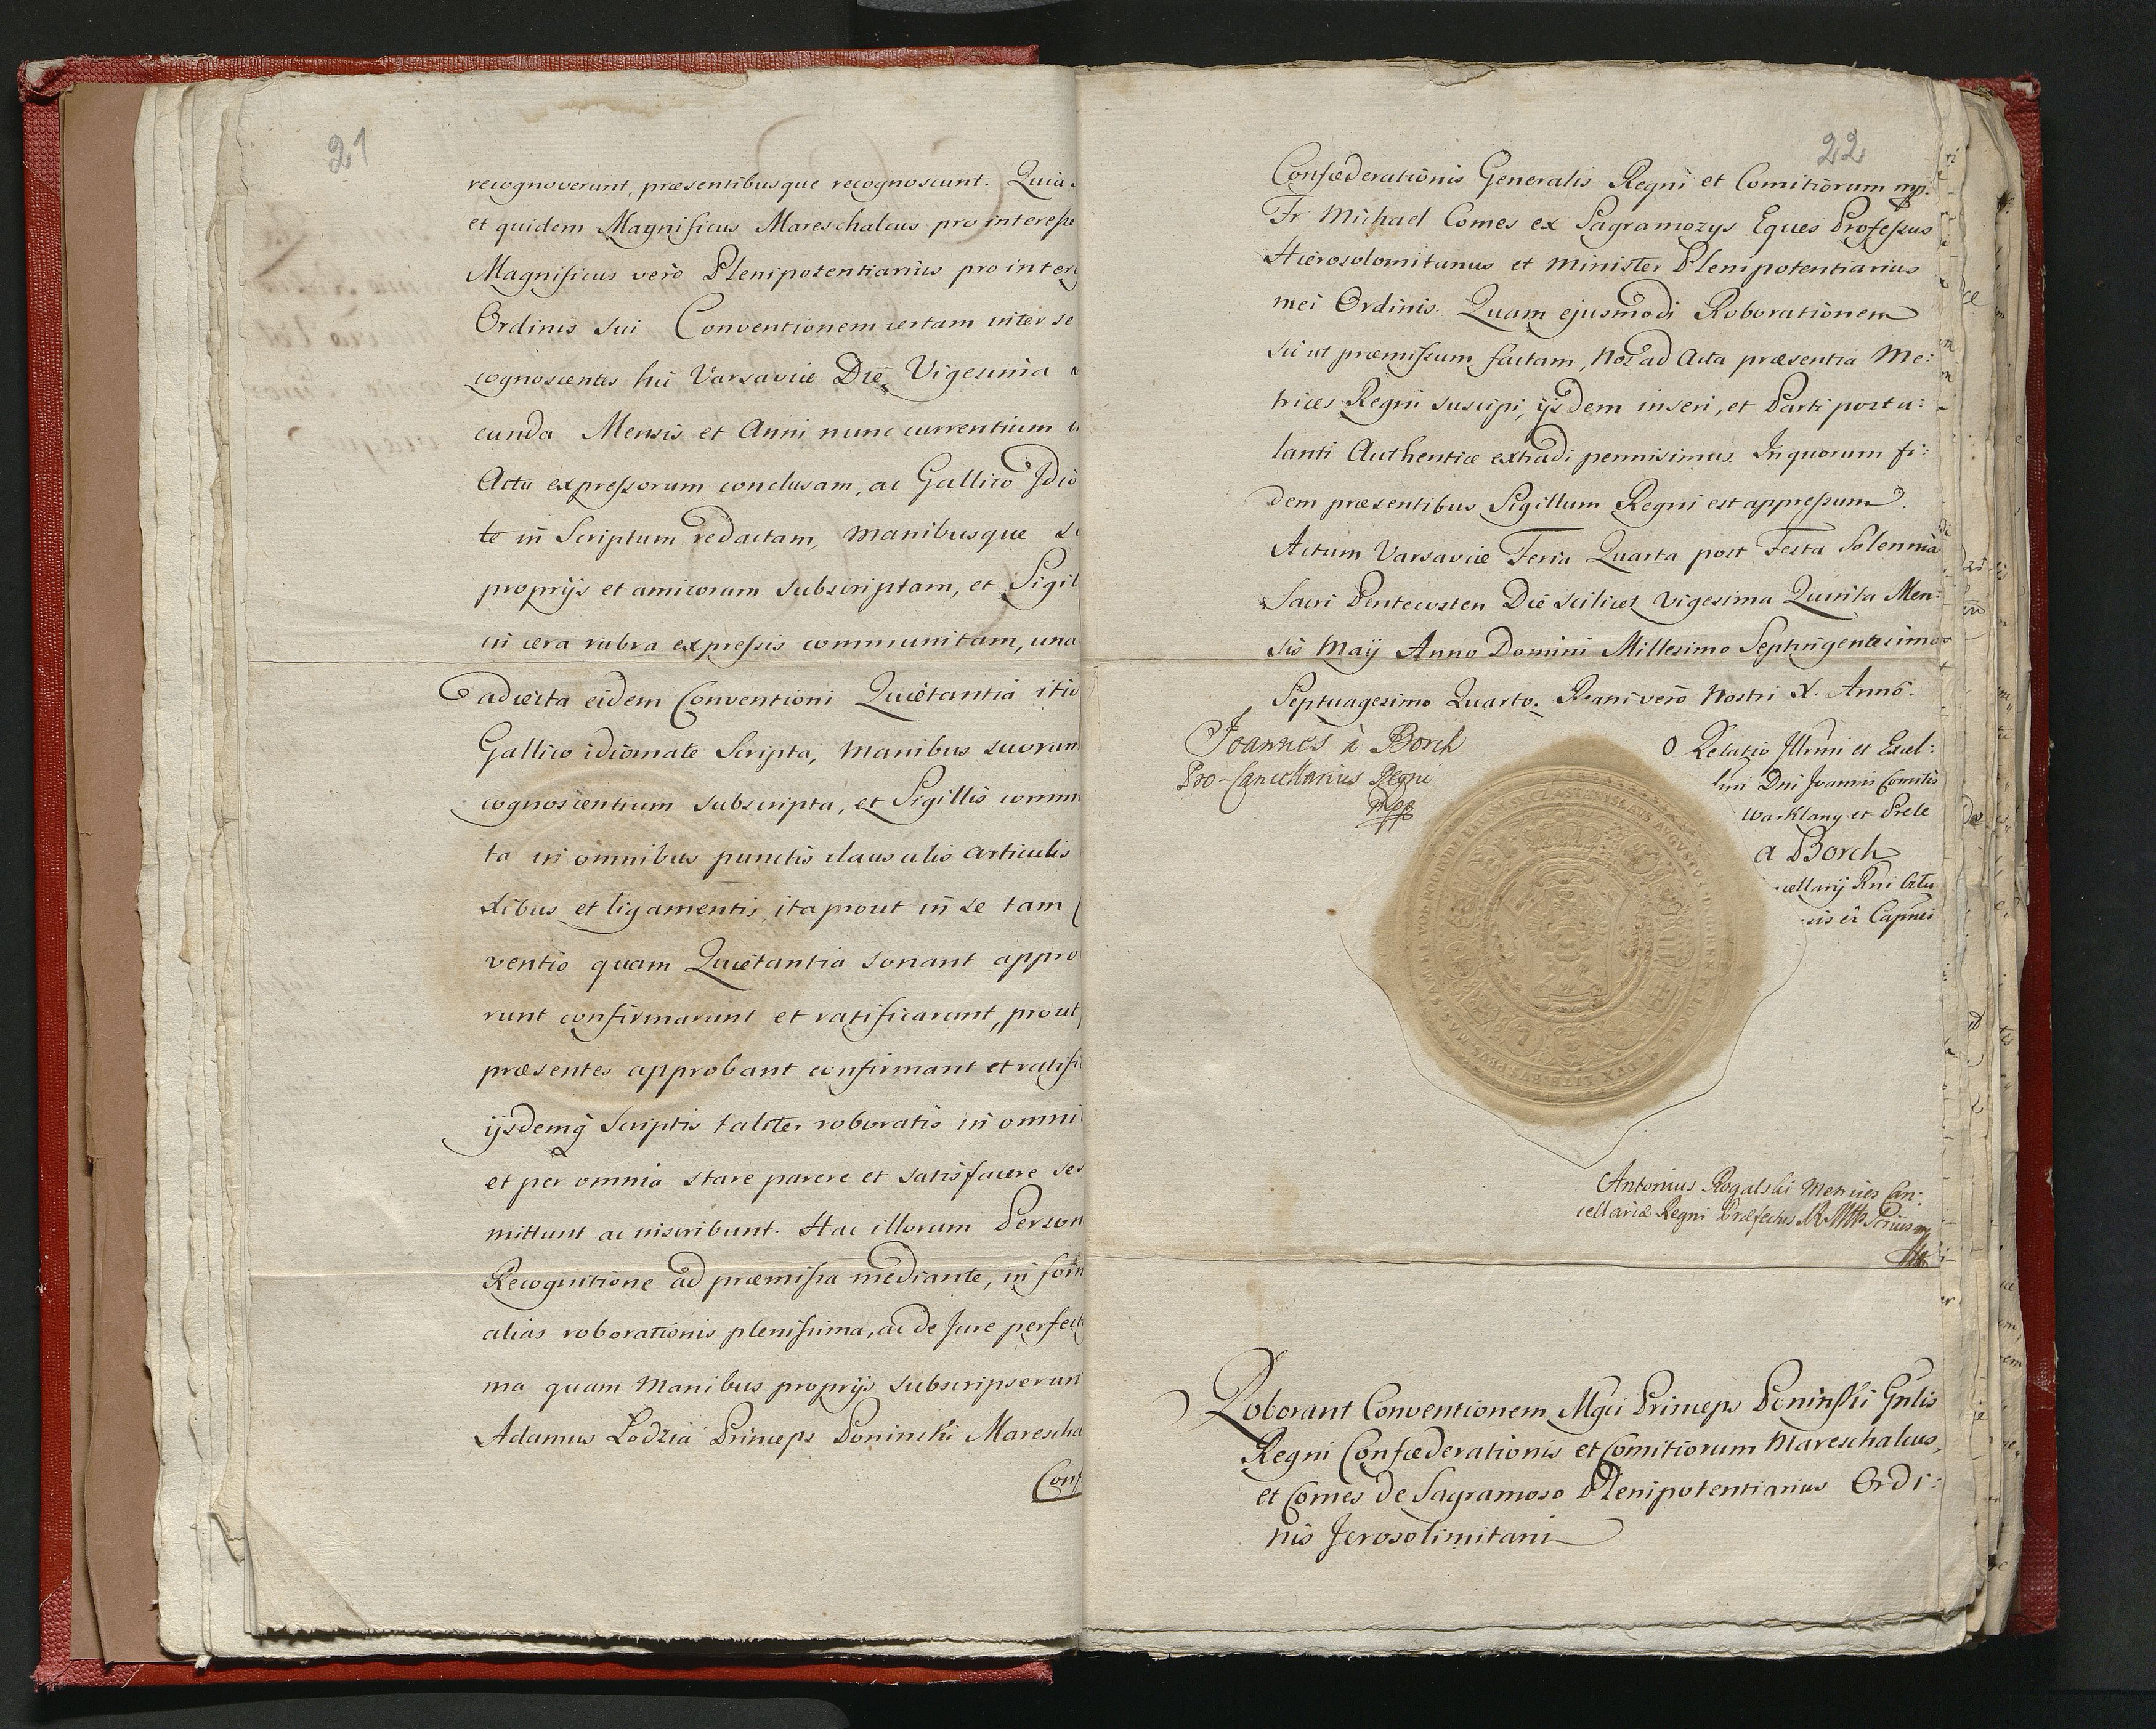 21
recognoverunt, præsentibusque recognoscunt. Quia
et quidem Magnificus Mareschalcus pro interesse
Magnificus vero Plenipotentiarius pro inter
Ordinis sui Conventionem certam inter se
cognoscentes hic Varsaviæ Die Vigesima
cunda Mensis et Anni nunc currentium
Actu expressorum conclusam, ac Gallico Idio
te in Scriptum redactam, manibusque
proprijs et amicorum subscriptam, et Sigil
in cera rubra expressis communitam, una
adiecta eidem Conventioni Quietantia
Gallico idiomate Scripta, manibus suorum
cognoscentium subscripta, et Sigillis comm
ta in omnibus punctis clausulis articulis
xibus et ligamentis, itaprout in se tam
ventio quam Quietantia sonant appro
runt confirmarunt et ratificarunt, prout
præsentes approbant confirmant et ratifi
ijsdemq Scriptis taliter roboratis in omni
et per omnia stare parere et satisfacere se
mittunt ac inscribunt. Hac illorum Person
Recognitione ad præmissa mediante, in for
alias roborationis plenissima, ac de Jure perfect
ma quam manibus proprijs subscripserun
Adamus Lodzia Princeps Poninski Marescha
Conf
22
Confæderationis Generalis Regni et Comitiorum mp.
Fr Michael Comes ex Sagramozys Eques Professus
Hierosolomitanus et Minister Plenipotentiarius
mei Ordinis. Quam ejusmodi Roborationem
sic ut præmissum factam, Nos ad Acta præsentia Me:
trices Regni suscipi, ijsdem inseri, et Parti postu:
lanti Authenticæ extradi permisimus. In quorum fi:
dem præsentibus Sigillum Regni est appressum.
Actum Varsaviæ Feria Quarta post Festa Solennia
Sacri Pentecosten Die scilicet Vigesima Quinta Men:
sis Maij Anno Domini Millesimo Septingentesimo
Septuagesimo Quarto. Regni vero Nostri X. Anno.
Joannes à Borch
Pro-Cancellarius Regni
mpp
Relatio Illrmi et Excel:
lmi Dni Joannis Comitis
Warklany et Prele
a Borch
cellarij Rni
Antonius Rogalski Metrices Can:
cellariæ Regni Præfectus
Roborant Conventionem Mgci Princeps Poninski Gnlis
Regni Confæderationis et Comitiorum Mareschalcus,
et Comes de Sagramoso Plenipotentiarius Ordi:
nis Jerosolimitani